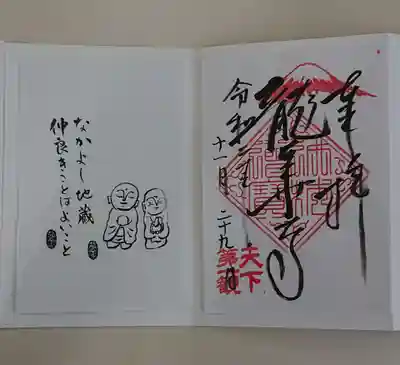 奉拝
龍華寺
令和二年
十一月二十九日
天下
なかよし地蔵
仲良きことはよいこと